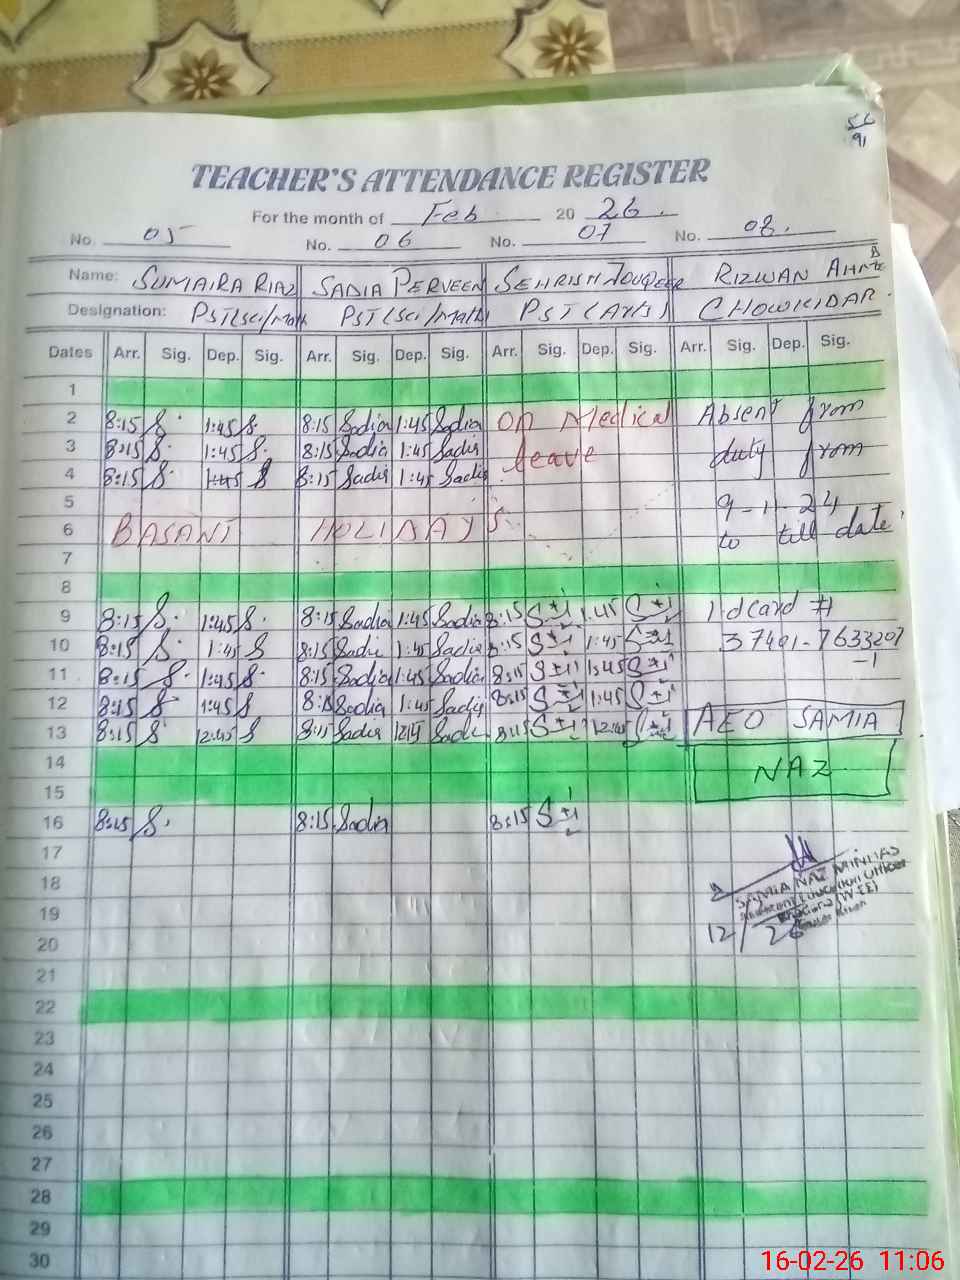 56
91
TEACHER'S ATTENDANCE REGISTER
For the month of Feb 2026
No. 05 No. 06 No. 07 No. 08.
Name: SUMAIRA RIAZ SADIA PERVEEN SEHRISH TOUQEER RIZWAN AHMED
Designation: PST(Sci/Math PST(Sci/Math) PST(Arts) CHOWKIDAR.
Dates Arr. Sig. Dep. Sig. Arr. Sig. Dep. Sig. Arr. Sig. Dep. Sig. Arr. Sig. Dep. Sig.
1
2 8:15 S. 1:45 S. 8:15 Sadia 1:45 Sadia On Medical Absent from
3 8:15 S. 1:45 S. 8:15 Sadia 1:45 Sadia leave duty from
4 8:15 S. 1:45 S 8:15 Sadia 1:45 Sadia
5 9-11-24
6 BASANT HOLIDAYS to till date
7
8
9 8:15 S. 1:45 S. 8:15 Sadia 1:45 Sadia 8:15 1:45 I.d card #
10 8:15 S. 1:45 S 8:15 Sadia 1:45 Sadia 8:15 1:45 37401-7633207
11 8:15 S. 1:45 S. 8:15 Sadia 1:45 Sadia 8:15 1:45 -1
12 8:15 S 1:45 S 8:15 Sadia 1:45 Sadia 8:15 1:45
13 8:15 S 12:45 S 8:15 Sadia Sadia 8:15 12:45 AEO SAMIA
14 NAZ
15
16 8:15 S. 8:15 Sadia 8:15
17
18 SAMIA NAZ MINHAS
19 Assistant Education Officer
20 12/2 26
21
22
23
24
25
26
27
28
29
30
16-02-26 11:06